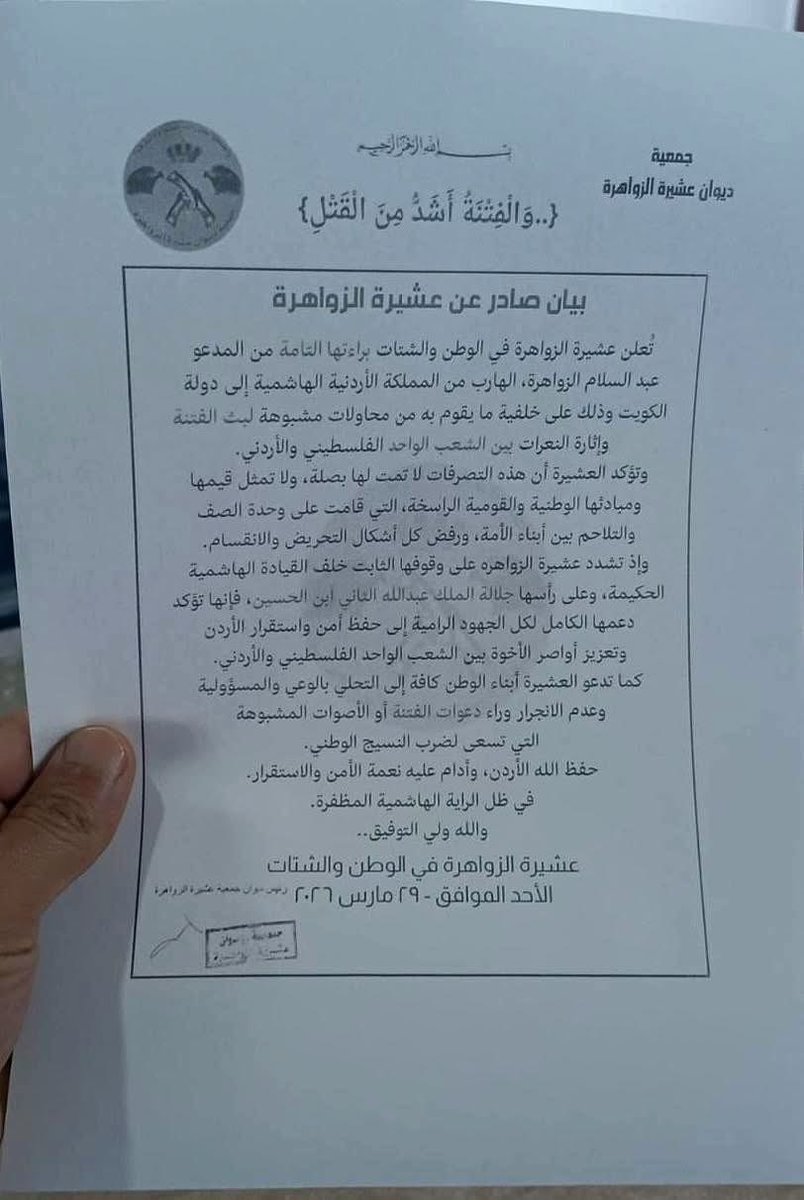 جمعية
ديوان عشيرة الزواهرة
بسم الله الرحمن الرحيم
{..وَالْفِتْنَةُ أَشَدُّ مِنَ الْقَتْلِ}
بيان صادر عن عشيرة الزواهرة
تُعلن عشيرة الزواهرة في الوطن والشتات براءتها التامة من المدعو
عبد السلام الزواهرة، الهارب من المملكة الأردنية الهاشمية إلى دولة
الكويت وذلك على خلفية ما يقوم به من محاولات مشبوهة لبث الفتنة
وإثارة النعرات بين الشعب الواحد الفلسطيني والأردني.
وتؤكد العشيرة أن هذه التصرفات لا تمت لها بصلة، ولا تمثل قيمها
ومبادئها الوطنية والقومية الراسخة، التي قامت على وحدة الصف
والتلاحم بين أبناء الأمة، ورفض كل أشكال التحريض والانقسام.
وإذ تشدد عشيرة الزواهره على وقوفها الثابت خلف القيادة الهاشمية
الحكيمة، وعلى رأسها جلالة الملك عبدالله الثاني ابن الحسين، فإنها تؤكد
دعمها الكامل لكل الجهود الرامية إلى حفظ أمن واستقرار الأردن
وتعزيز أواصر الأخوة بين الشعب الواحد الفلسطيني والأردني.
كما تدعو العشيرة أبناء الوطن كافة إلى التحلي بالوعي والمسؤولية
وعدم الانجرار وراء دعوات الفتنة أو الأصوات المشبوهة
التي تسعى لضرب النسيج الوطني.
حفظ الله الأردن، وأدام عليه نعمة الأمن والاستقرار.
في ظل الراية الهاشمية المظفرة.
والله ولي التوفيق..
عشيرة الزواهرة في الوطن والشتات
الأحد الموافق - ٢٩ مارس ٢٠٢٦
رئيس ديوان جمعية عشيرة الزواهرة
جمعية ديوان
عشيرة الزواهرة